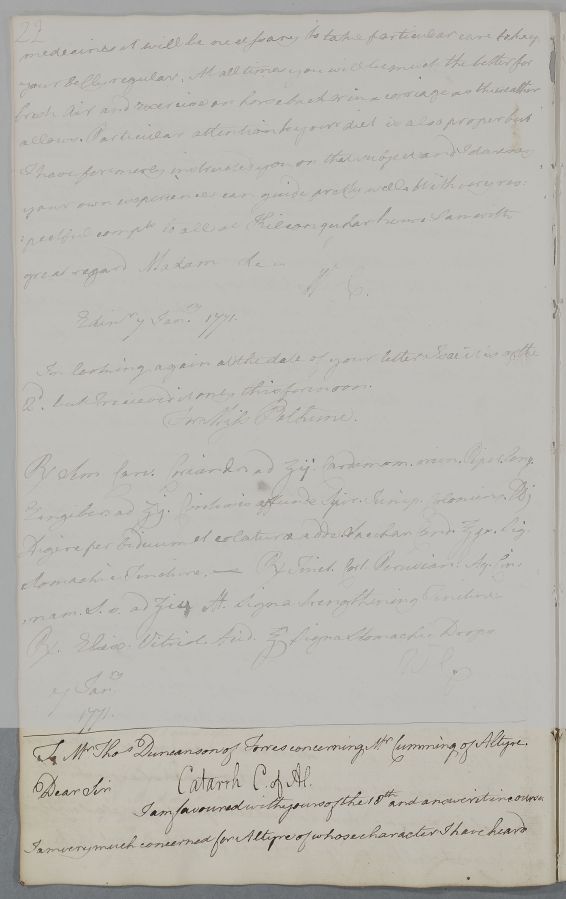 22
medecines it will be necessary to take particular care to keep
your Belly regular. At all times you will be much the better for
fresh air and exercise on horseback or in a carriage as the weather
allows. Particular attention to your diet is also proper but
I have formerly instructed you on that subject and I
your own experience can guide pretty well. With very res:
:pectful compts to all at
great regard Madam &c
W. C.
Edinr 7 Janry 1771.
In looking again at the date of your letter I see it is of the
2d. but I received it only this forenoon.
For
Rx Sem Carv. Coriandr. ad Cardamom. min. Piper. Long.
Zingiber. ad
Digere per biduum et colaturae adde Sacchar.
Stomachic Tincture. — Rx Tinct. Cort. Peruvian.
nam. S. v. ad Signa Strengthening Tincture
Rx. Elix. Vitriol. Acid. Signa Stomachic Drops
W C
7 Janry
1771.
To Mr Thos Duncanson of Forres concerning Mr Cumming of Altyre.
Dear Sir Catarrh C. of Al.
I am favoured with yours of the 18th and answer it in course
I am very much concerned for Altyre of whose character I have heard